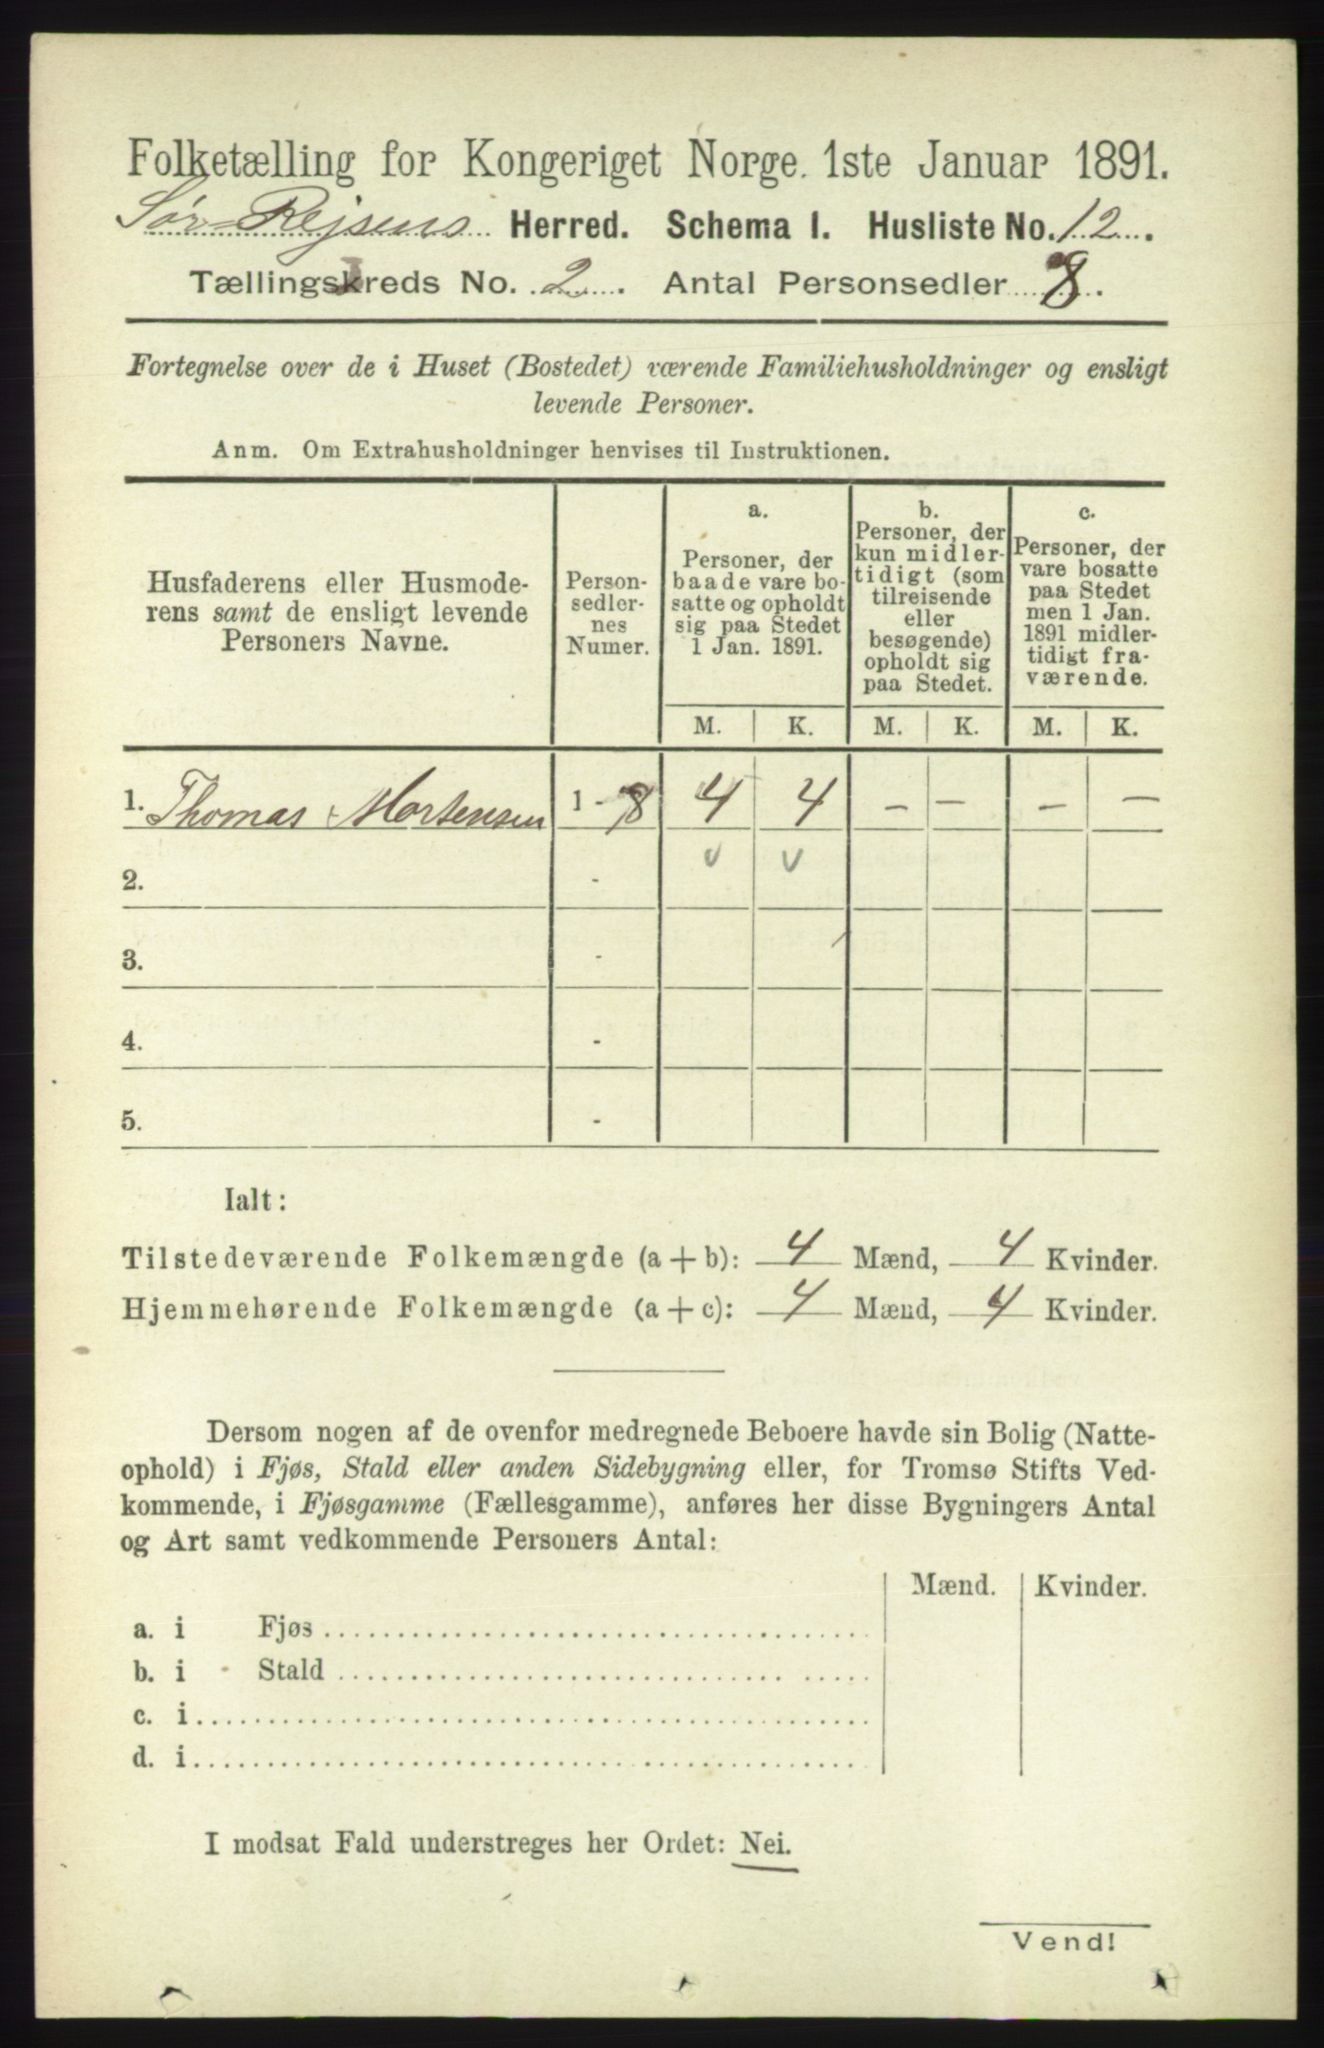 Folketælling for Kongeriget Norge. 1ste Januar 1891.
Sør-Rejsens Herred. Schema I. Husliste No. 12.
Tællingskreds No. 2. Antal Personsedler 8.
Fortegnelse over de i Huset (Bostedet) værende Familiehusholdninger og ensligt
levende Personer.
Anm. Om Extrahusholdninger henvises til Instruktionen.
Husfaderens eller Husmode-
rens samt de ensligt levende
Personers Navne.
Person-
sedler-
nes
Numer.
a.
Personer, der
baade vare bo-
satte og opholdt
sig paa Stedet
1 Jan. 1891.
b.
Personer, der
kun midler-
tidigt (som
tilreisende
eller
besøgende)
opholdt sig
paa Stedet.
c.
Personer, der
vare bosatte
paa Stedet
men 1 Jan.
1891 midler-
tidigt fra-
værende.
M. K. M. K. M. K.
1. Thomas Mortensen 1 - 8 4 4 - - - -
v v
2. -
3. -
4. -
5. -
Ialt:
Tilstedeværende Folkemængde (a + b): 4 Mænd, 4 Kvinder.
Hjemmehørende Folkemængde (a + c): 4 Mænd, 4 Kvinder.
Dersom nogen af de ovenfor medregnede Beboere havde sin Bolig (Natte-
ophold) i Fjøs, Stald eller anden Sidebygning eller, for Tromsø Stifts Ved-
kommende, i Fjøsgamme (Fællesgamme), anføres her disse Bygningers Antal
og Art samt vedkommende Personers Antal:
Mænd. Kvinder.
a. i Fjøs
b. i Stald
c. i
d. i
I modsat Fald understreges her Ordet: Nei.
Vend!